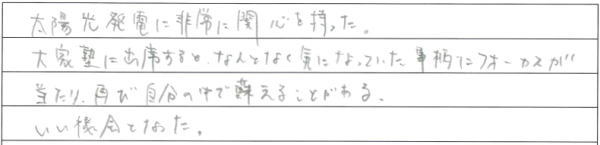 太陽光発電に非常に関心を持った。
大家塾に出席すると、なんとなく気になっていた事柄にフォーカスが
当たり、再び自分の中で蘇えることがある。
いい機会となった。